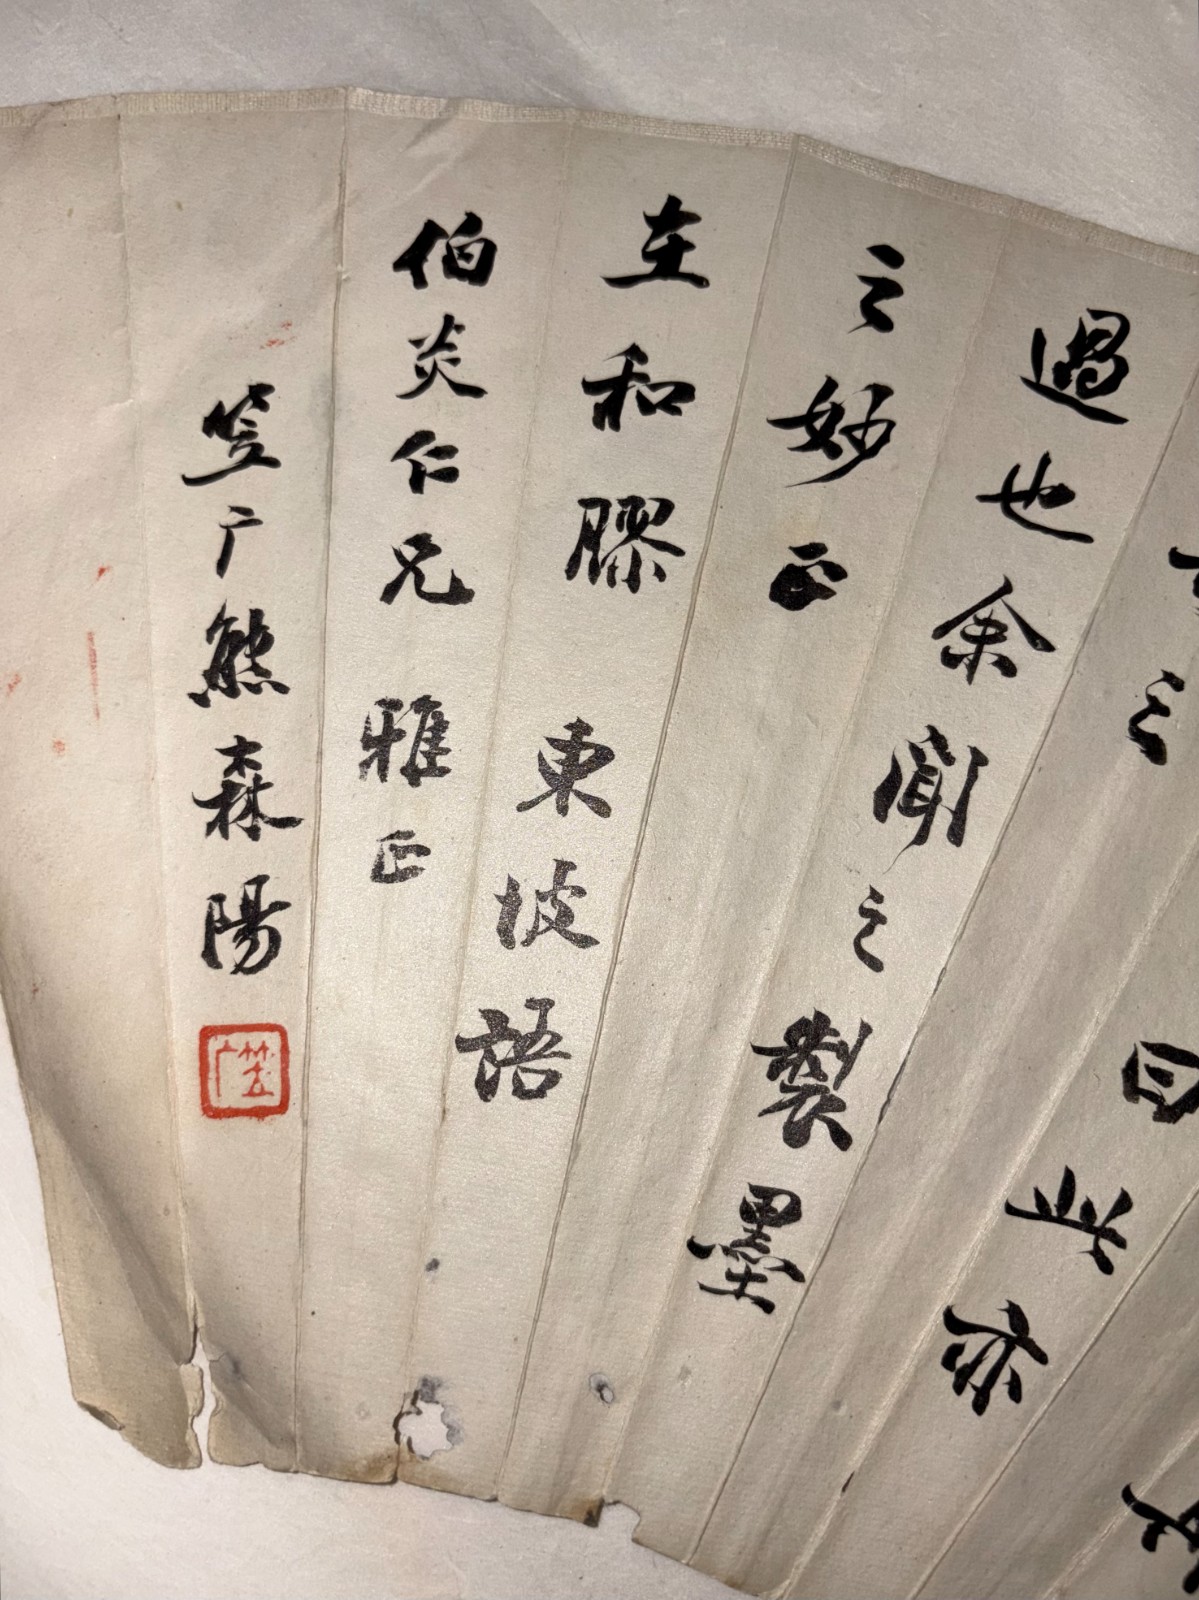 曰此亦
之
過也余聞之製墨
之妙正
在和膠 東坡語
伯炎仁兄 雅正
笠广熊森陽
笠广